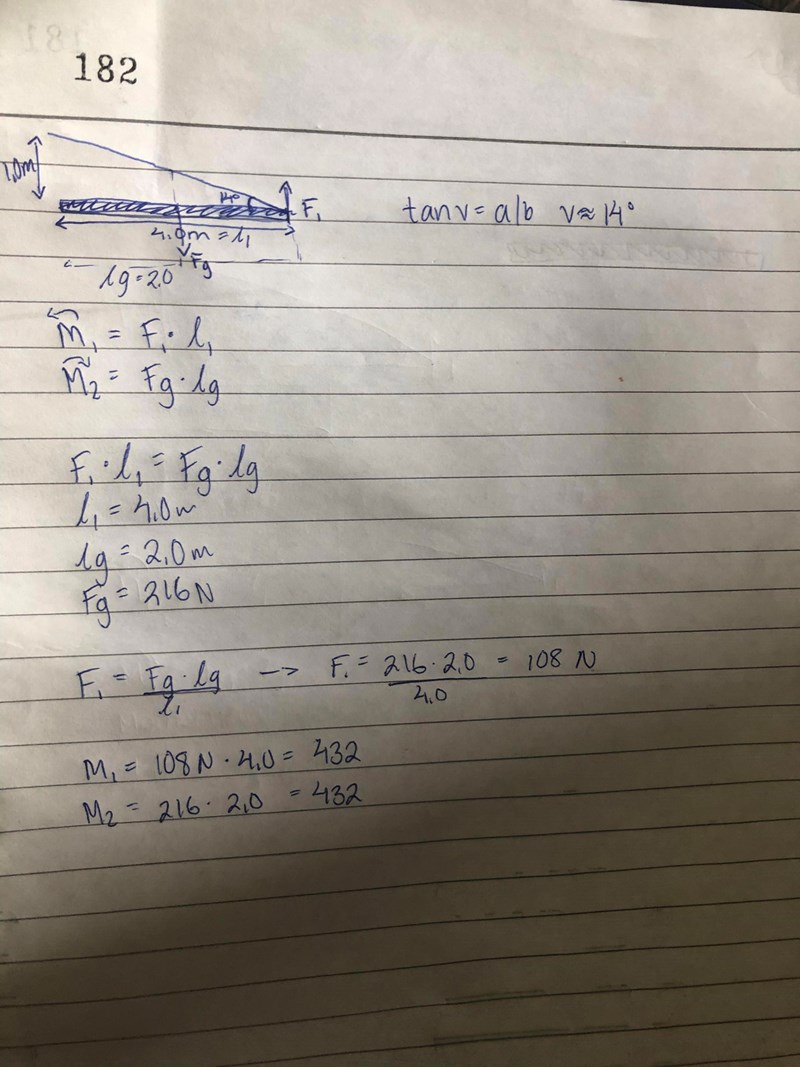 182
1,0m
14°
F₁
tanv = a/b v≈14°
4.0m = l₁
Fg
lg = 2.0
M₁ = F₁· l₁
M₂ = Fg · lg
F₁ · l₁ = Fg · lg
l₁ = 4,0m
lg = 2,0m
Fg = 216N
F₁ = Fg · lg / l₁ → F₁ = 216 · 2,0 / 4,0 = 108 N
M₁ = 108N · 4,0 = 432
M₂ = 216 · 2,0 = 432